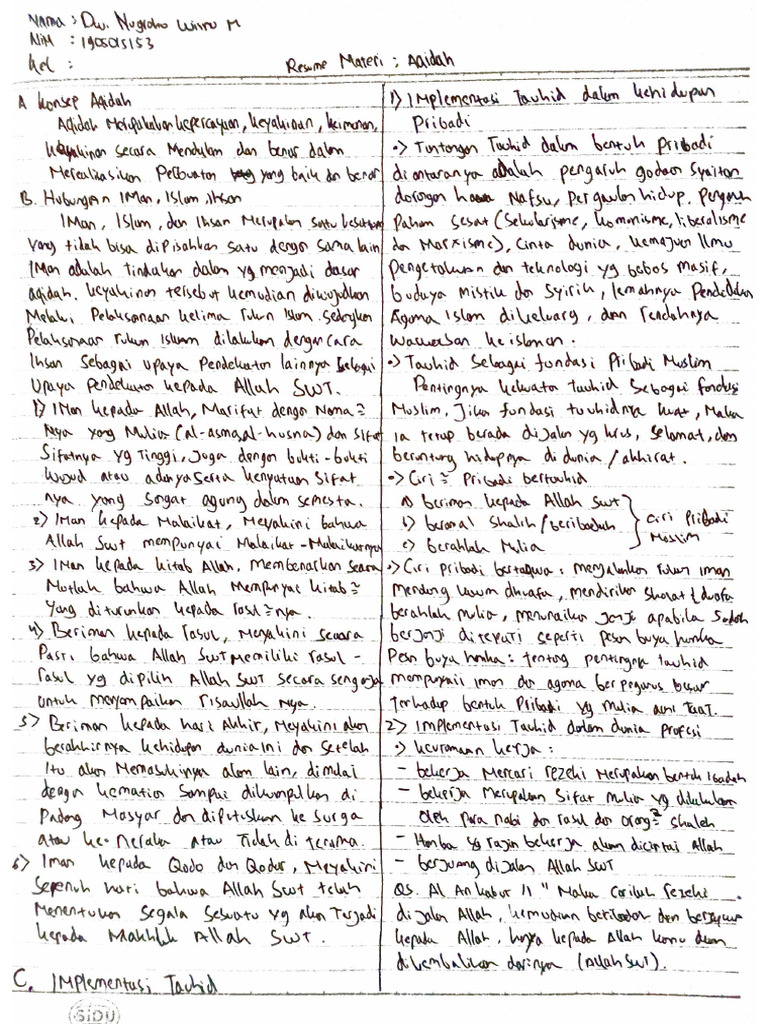 Nama : Dwi Nugroho Wisnu M
NIM : 1905015153
Kel :
Resume Materi : Aqidah
A Konsep Aqidah
Aqidah Merupakan kepercayaan, keyakinan, keimanan,
keyakinan secara Mendalam dan benar dalam
Merealisasikan Perbuatan yang baik dan benar
B. Hubungan Iman, Islam, ihsan
Iman, Islam, dan Ihsan Merupakan satu kesatuan
yang tidak bisa dipisahkan satu dengan sama lain
Iman adalah tindakan dalam yg menjadi dasar
aqidah. keyakinan tersebut kemudian diwujudkan
Melalui Pelaksanaan kelima rukun Islam. sedangkan
Pelaksanaan rukun Islam dilakukan dengan cara
Ihsan Sebagai upaya Pendekatan lainnya sebagai
Upaya Pendekatan kepada Allah SWT.
1) Iman kepada Allah, Marifat dengan Nama²
Nya yang Mulia (al-asma, al-husna) dan sifat
Sifatnya yg Tinggi, Juga dengan bukti-bukti
wujud atau adanya serta kenyataan Sifat
nya yang Sangat agung dalam semesta.
2) Iman kepada Malaikat, Meyakini bahwa
Allah Swt mempunyai Malaikat-Malaikatnya
3) Iman kepada kitab Allah, Membenarkan secara
Mutlak bahwa Allah Mempunyai kitab²
Yang diturunkan kepada rasul²nya.
4) Beriman kepada rasul, Meyakini secara
Pasti bahwa Allah SWT Memiliki rasul -
rasul yg dipilih Allah SWT secara sengaja
untuk menyampaikan risaullah Nya.
5) Beriman kepada hari Akhir, Meyakini akan
berakhirnya kehidupan dunia ini dan setelah
Itu akan Memasukinya alam lain, dimulai
dengan kematian Sampai dikumpulkan di
Padang Masyar dan diputuskan ke surga
atau ke-neraka atau Tidak diterima.
6) Iman kepada Qodo dan Qodar, Meyakini
Sepenuh hati bahwa Allah Swt telah
Menentukan Segala Sesuatu yg akan Terjadi
kepada Makhluk Allah SWT.
C. Implementasi Tauhid
1) Implementasi Tauhid dalam kehidupan
Pribadi
•) Tantangan Tauhid dalam bentuk pribadi
diantaranya adalah pengaruh godaan Syaitan
dorongan hawa Nafsu, Pergaulan hidup, Pengaruh
Paham Sesat (Sekularisme, komonisme, liberalisme
dan Marxisme), Cinta dunia, kemajuan Ilmu
Pengetahuan dan teknologi yg bebas masif,
budaya mistik dan Syirik, lemahnya Pendidikan
Agama Islam dikeluarg, dan Rendahnya
Wawasan keislaman.
•) Tauhid Sebagai fundasi Pribadi Muslim
Pentingnya kekuatan tauhid Sebagai fondasi
Muslim, Jika fundasi tauhidnya kuat, Maka
ia tetap berada di jalan yg lurus, Selamat, dan
beruntung hidupnya di dunia / akhirat.
•) Ciri² Pribadi bertauhid
a) beriman kepada Allah Swt
b) beramal Shalih / beribadah
c) berahlak Mulia
Ciri Pribadi
Muslim
•) Ciri pribadi bertaqwa : menjalankan rukun iman
Mendukung kaum dhuafa, mendirikan sholat
berahlak mulia, menunaikan Janji apabila Sudah
berjanji ditepati seperti pesan buya hamka
Pesan buya hamka : tentang pentingnya tauhid
mempunyai iman dan agama berpegaruh besar
Terhadap bentuk Pribadi yg mulia dan taat.
2) Implementasi Tauhid dalam dunia profesi
•) keutamaan kerja :
- bekerja Mencari rezeki Merupakan bentuk Ibadah
- bekerja Merupakan Sifat mulia yg dilakukan
oleh para nabi dan rasul dan orang² shaleh
- Hamba yg rajin bekerja akan dicintai Allah
- berjuang di jalan Allah SWT
QS. Al Ankabut 11 " Maka Carilah rezeki
di jalan Allah, kemudian beribadah dan bersyukur
kepada Allah, hanya kepada Allah kamu akan
dikembalikan darinya (Allah SWT).
SiDU